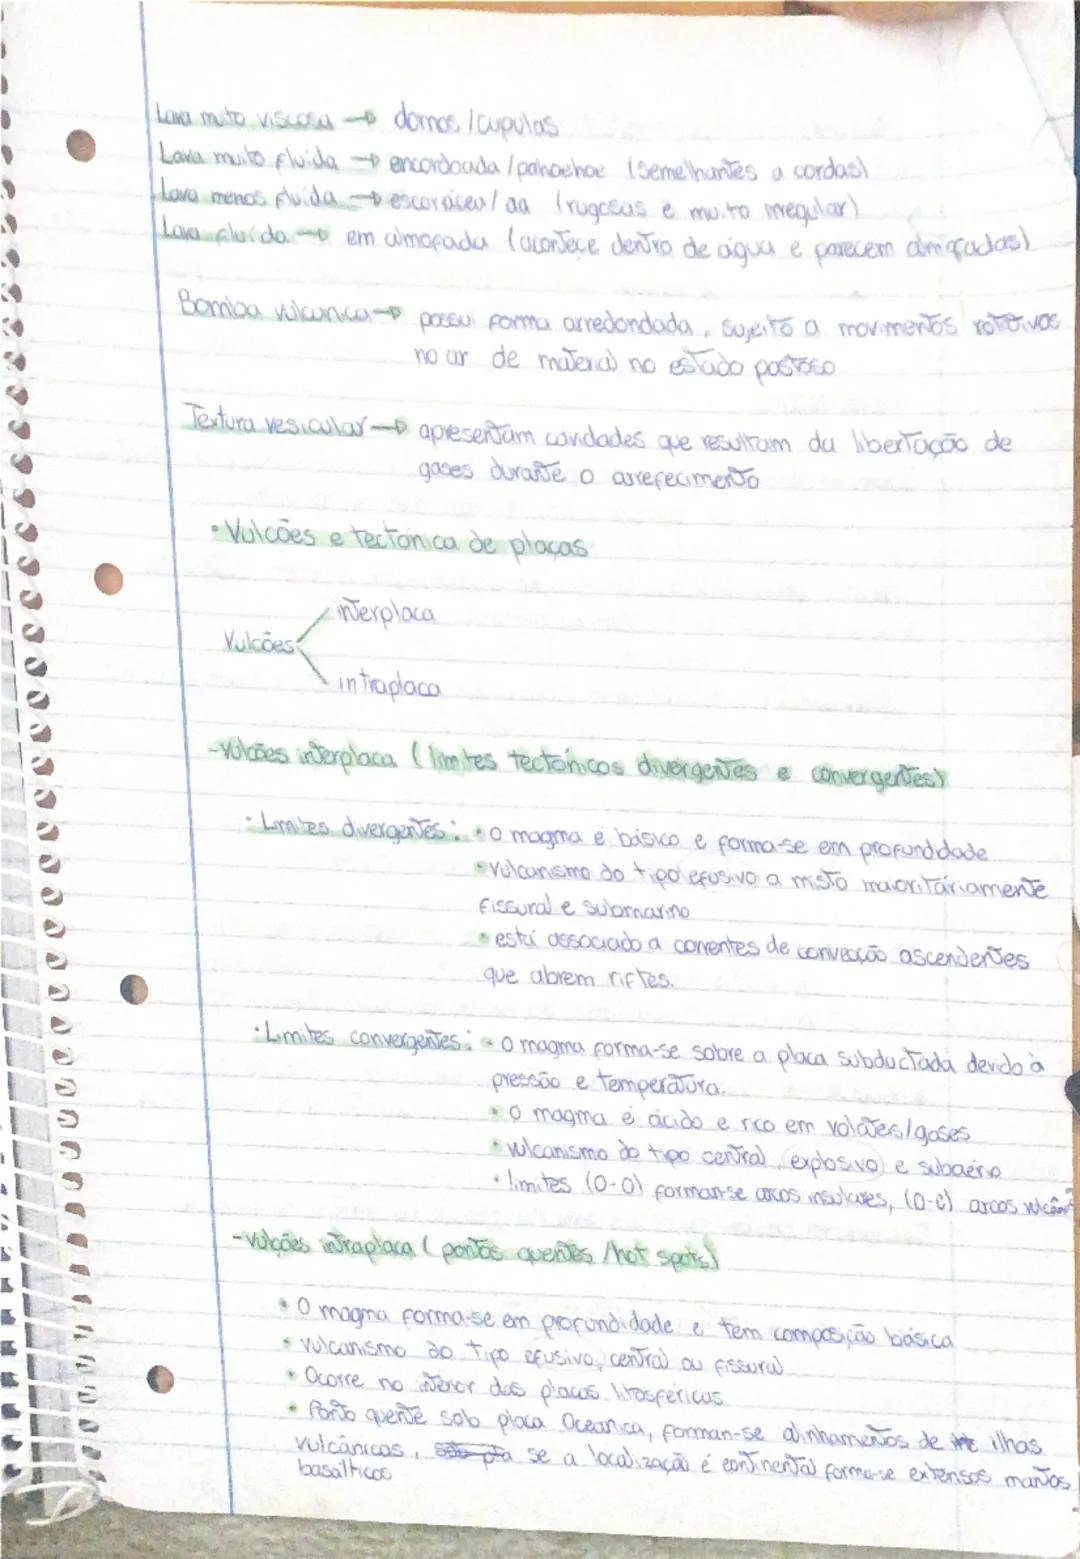 Lava muito viscosa → domos/cupulas
Lava muito fluida → encordoada/pahoehoe (semelhantes a cordas)
Lava menos fluida → escoriácea/aa (rugosas e muito irregular)
Lava fluida → em almofada (acontece dentro de água e parecem almofadas)
Bomba vulcanica → possui forma arredondada, sujeito a movimentos rotativos
no ar de material no estado pastoso
Textura vesicular → apresentam cavidades que resultam da libertação de
gases durante o arrefecimento
• Vulcões e tectónica de placas
interplaca
Vulcões
intraplaca
- Vulcões interplaca (limites tectónicos divergentes e convergentes)
• Limites divergentes: • o magma é básico e forma-se em profundidade
• vulcanismo do tipo efusivo a misto maioritáriamente
fissural e submarino
• está associado a correntes de convecção ascendentes
que abrem riftes.
• Limites convergentes: • o magma forma-se sobre a placa subductada devido à
pressão e temperatura.
• O magma é ácido e rico em voláteis/gases
• vulcanismo do tipo central, explosivo e subaério
• limites (O-O) formam-se arcos insulares, (O-C) arcos
- Vulcões intraplaca (pontos quentes/hot spots)
• O magma forma-se em profundidade e tem composição básica
• vulcanismo do tipo efusivo, central ou fissural
• Ocorre no interior das placas litosféricas
• Ponto quente sob placa Oceanica, forman-se alinhamentos de ilhas
vulcânicas, se a localização é continental forma-se extensos mantos
basálticos